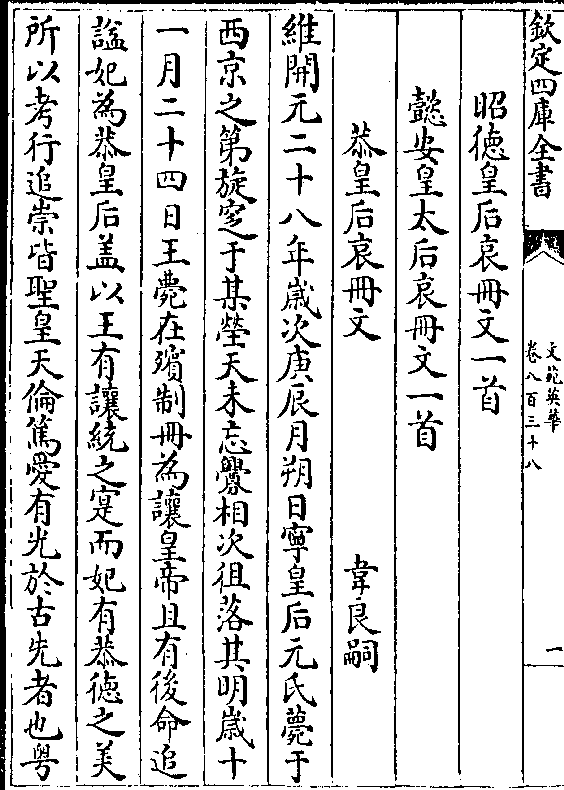 欽定四庫全書
文苑英華
卷八百三十八
一
昭德皇后哀冊文一首
懿安皇太后哀冊文一首
恭皇后哀冊文 韋良嗣
維開元二十八年歲次庚辰月朔日寧皇后元氏薨于
西京之第旋窆于某塋天未忘釁相次徂落其明歲十
一月二十四日王薨在殯制冊為讓皇帝且有後命追
諡妃為恭皇后盖以王有讓統之寔而妃有恭德之美
所以考行追崇皆聖皇天倫篤愛有光於古先者也粤